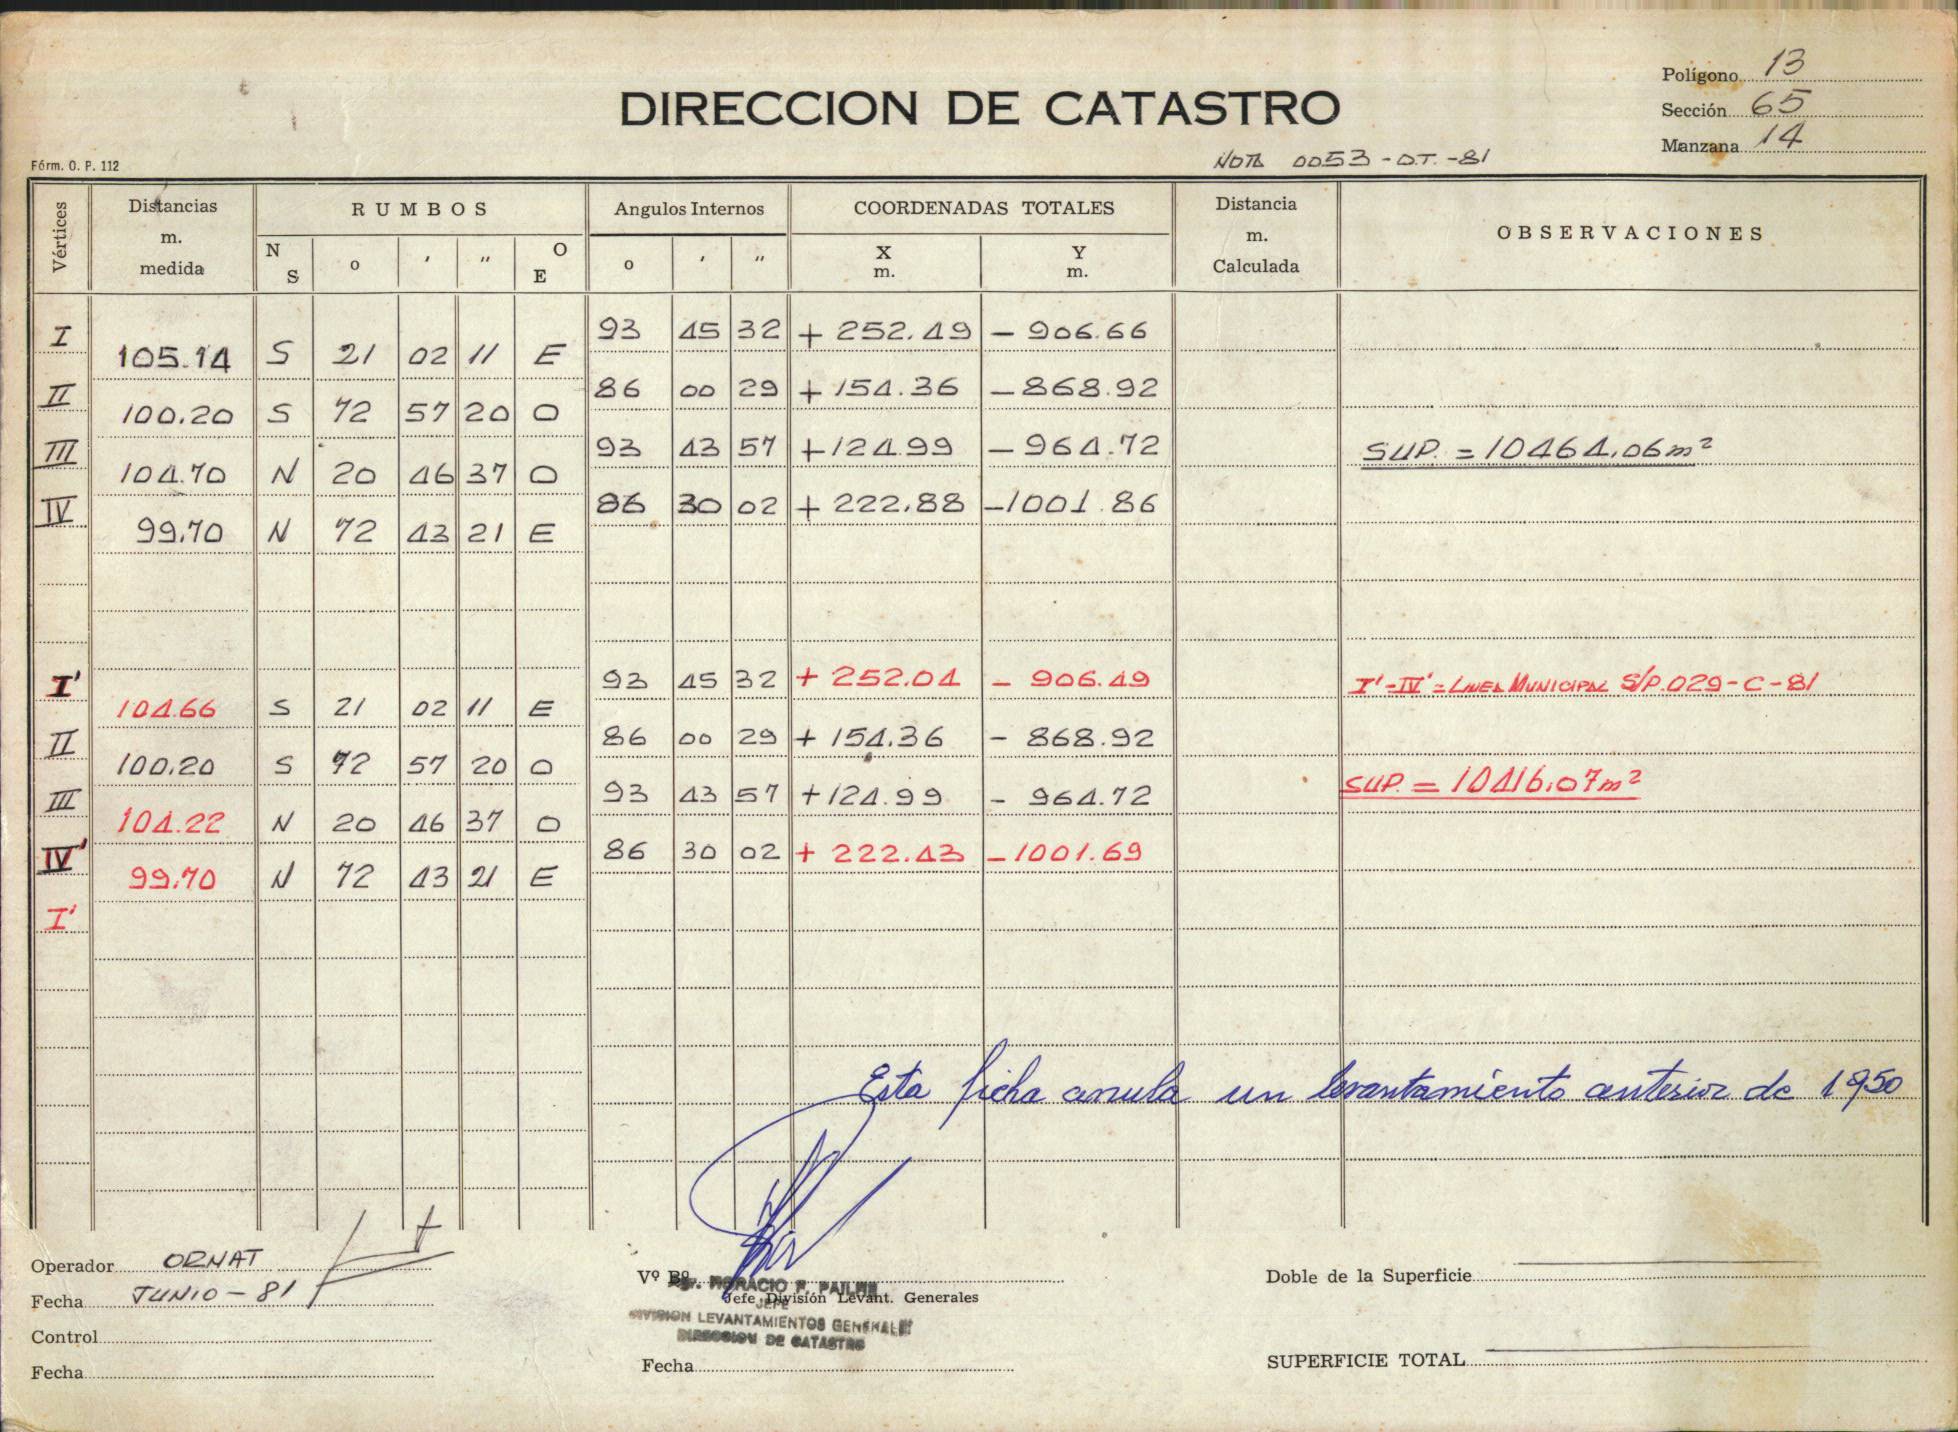 Polígono 13
DIRECCION DE CATASTRO
Sección 65
Manzana 14
NOTA 0053-O.T.-81
Fórm. O. P. 112
Vértices Distancias m. medida RUMBOS Angulos Internos COORDENADAS TOTALES Distancia m. Calculada OBSERVACIONES
N S o ' " O E o ' " X m. Y m.
I 93 45 32 + 252.49 - 906.66
105.14 S 21 02 11 E
II 86 00 29 + 154.36 - 868.92
100.20 S 72 57 20 O
III 93 43 57 + 124.99 - 964.72 SUP. = 10464.06 m²
104.70 N 20 46 37 O
IV 86 30 02 + 222.88 -1001.86
99.70 N 72 43 21 E
I' 93 45 32 + 252.04 - 906.49 I'-IV' = LINEA MUNICIPAL S/P.029-C-81
104.66 S 21 02 11 E
II 86 00 29 + 154.36 - 868.92
100.20 S 72 57 20 O
III 93 43 57 + 124.99 - 964.72 SUP. = 10416.07 m²
104.22 N 20 46 37 O
IV' 86 30 02 + 222.43 -1001.69
99.70 N 72 43 21 E
I'
Esta ficha anula un levantamiento anterior de 1950
Operador ORNAT
Fecha JUNIO-81
Control
Fecha
Vº Bº
HORACIO F.
Jefe División Levant. Generales
JEFE
DIVISION LEVANTAMIENTOS GENERALES
DIRECCION DE CATASTRO
Fecha
Doble de la Superficie
SUPERFICIE TOTAL